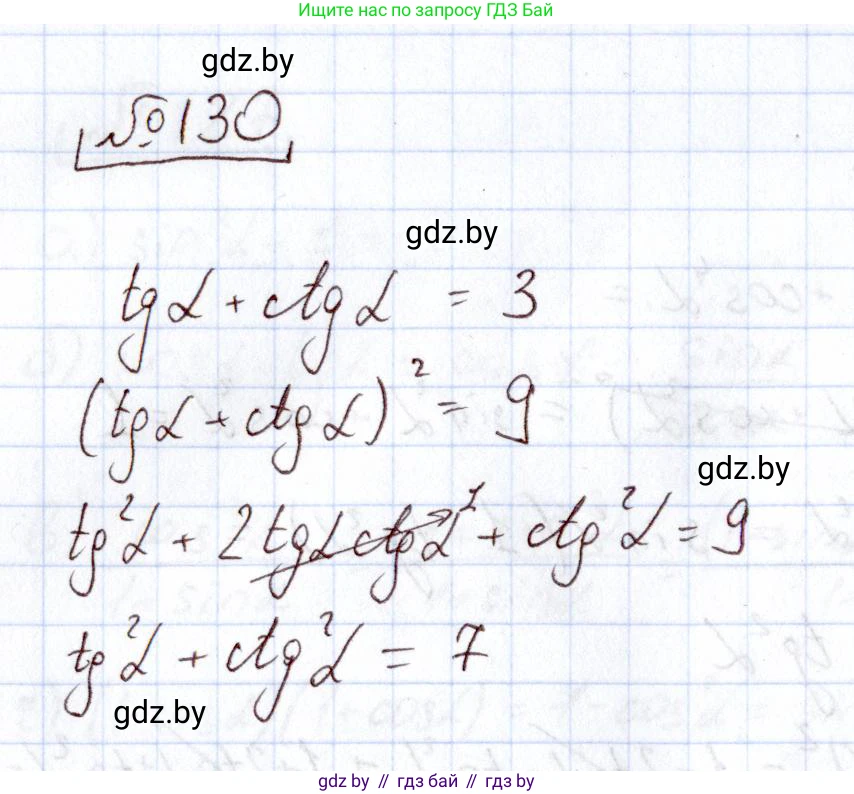 Ищите нас по запросу ГДЗ Бай
gdz.by
№130
gdz.by
tg α + ctg α = 3
(tg α + ctg α)² = 9
gdz.by
tg²α + 2 tg α ctg α 1 + ctg²α = 9
tg²α + ctg²α = 7
gdz.by
gdz by // гдз бай // гдз by